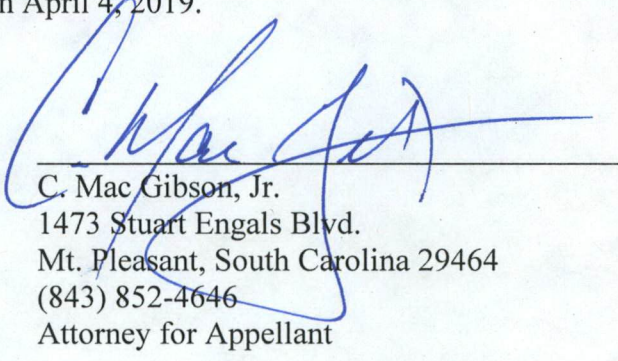 n April 4, 2019.
C. Mac Gibson, Jr.
1473 Stuart Engals Blvd.
Mt. Pleasant, South Carolina 29464
(843) 852-4646
Attorney for Appellant